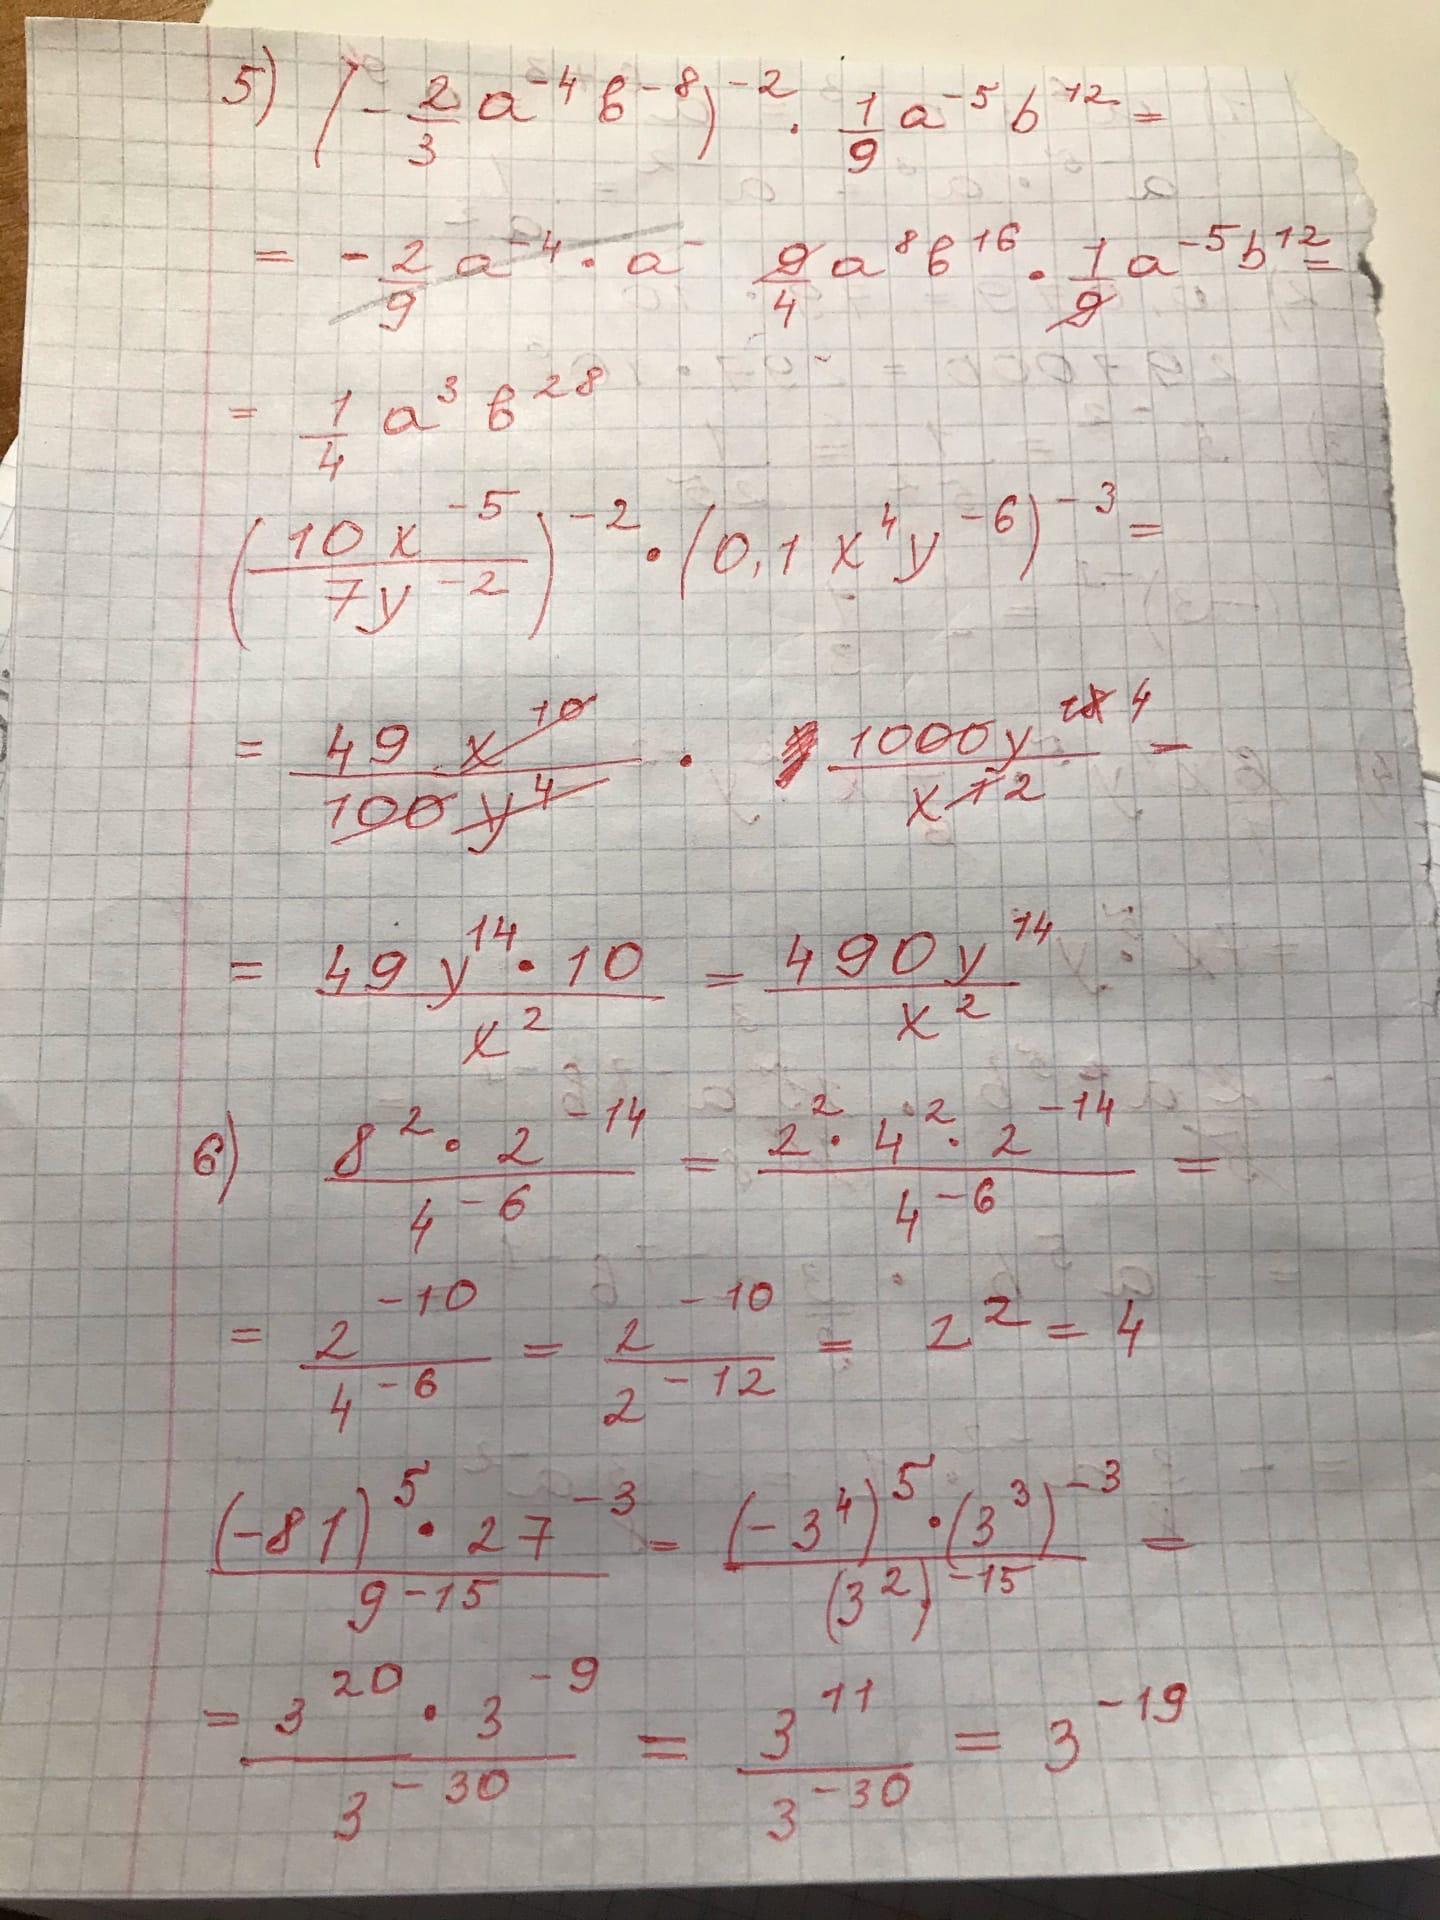 5) (-2/3 a⁻⁴ b⁻⁸)⁻² · 1/9 a⁻⁵ b¹² =
= -2/9 a⁻⁴ · a⁻ 9/4 a⁸ b¹⁶ · 1/9 a⁻⁵ b¹² =
= 1/4 a³ b²⁸
(10x⁻⁵/7y⁻²)⁻² · (0,1x⁴y⁻⁶)⁻³ =
= 49x¹⁰/100y⁴ · 1000y¹⁸ ¹⁴/x¹² =
= 49y¹⁴ · 10/x² = 490y¹⁴/x²
6) 8² · 2⁻¹⁴/4⁻⁶ = 2² · 4² · 2⁻¹⁴/4⁻⁶ =
= 2⁻¹⁰/4⁻⁶ = 2⁻¹⁰/2⁻¹² = 2² = 4
(-81)⁵ · 27⁻³/9⁻¹⁵ = (-3⁴)⁵ · (3³)⁻³/(3²)⁻¹⁵ =
= 3²⁰ · 3⁻⁹/3⁻³⁰ = 3¹¹/3⁻³⁰ = 3⁻¹⁹